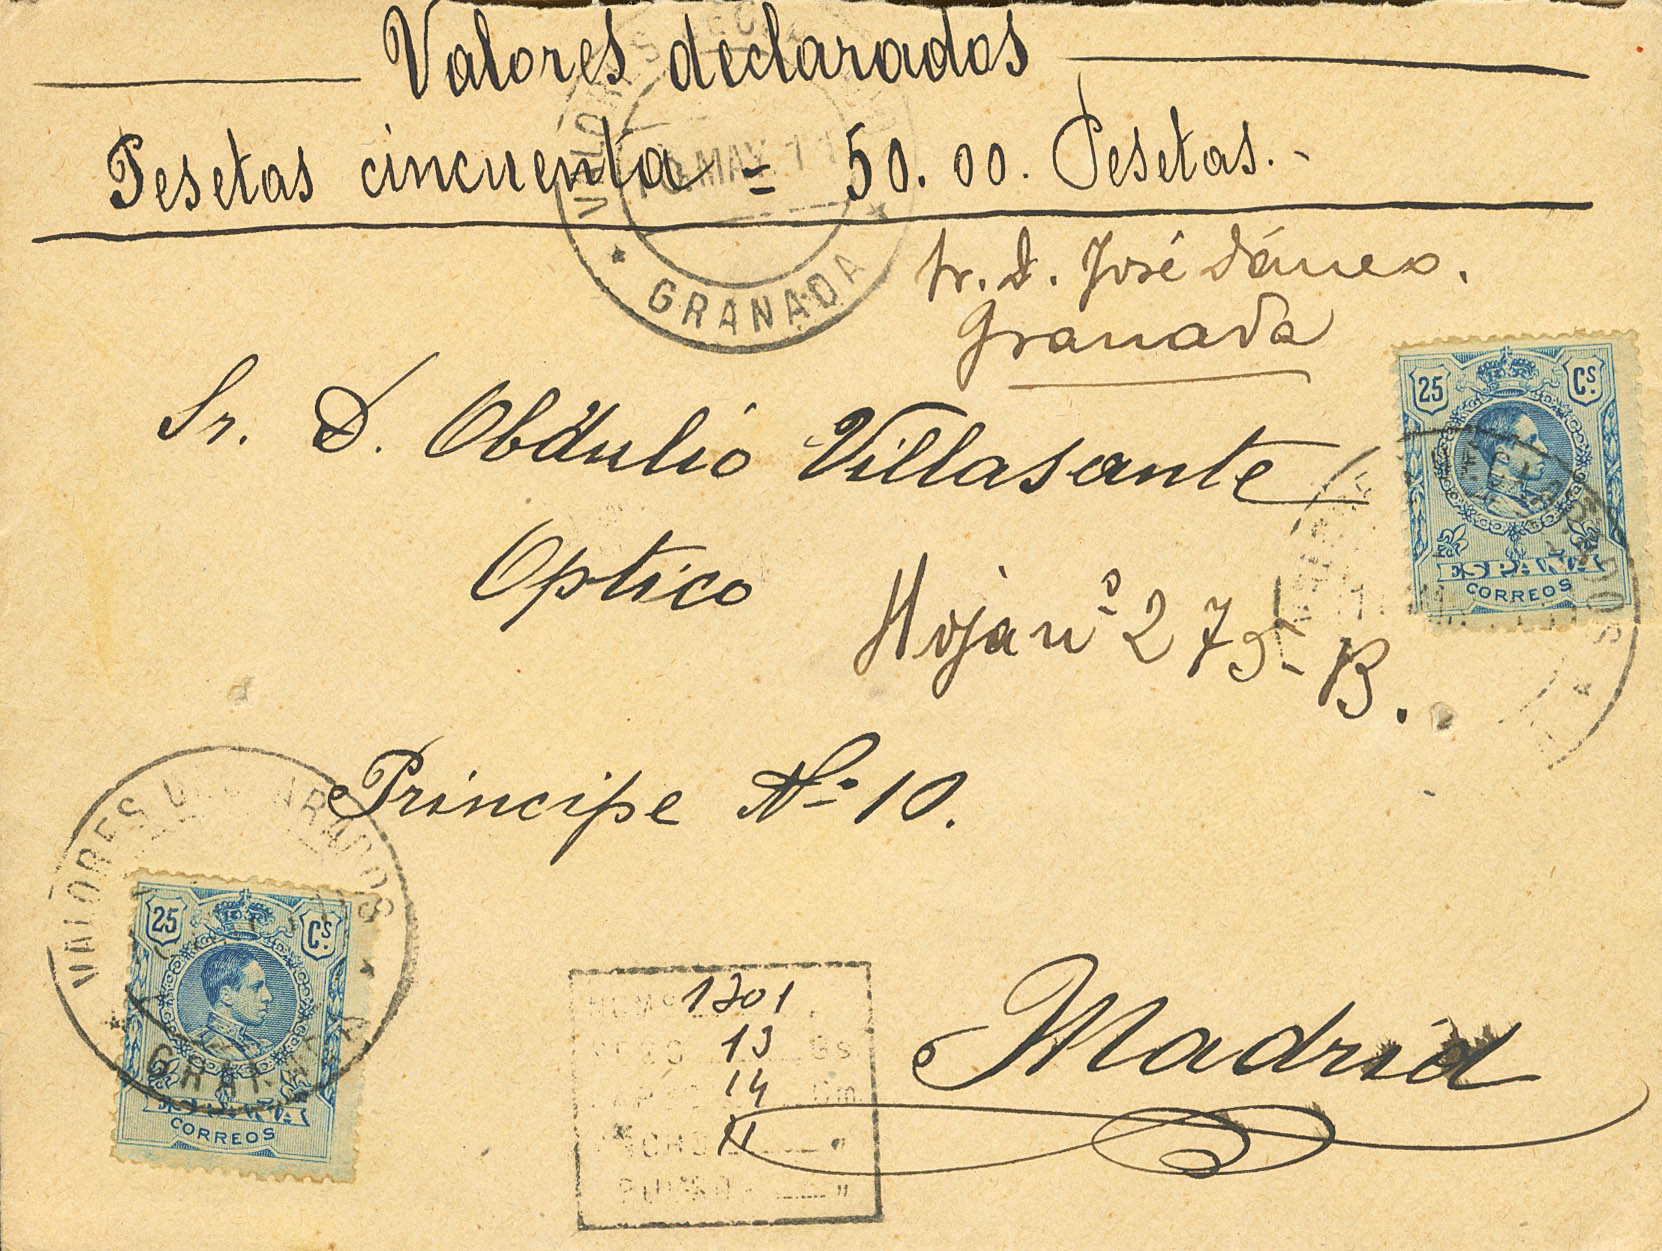 Valores declarados
Pesetas cincuenta = 50.00. Pesetas.-
MAY. 11
GRANADA
José
Granada
Sr. D. Obdulio Villasante
Optico
Hoja nº 279-B.
Principe Nº 10.
Madrid
25 Cs.
ESPAÑA
CORREOS
VALORES
GRANADA
25 Cs.
ESPAÑA
CORREOS
1701
13 Gs
14
11